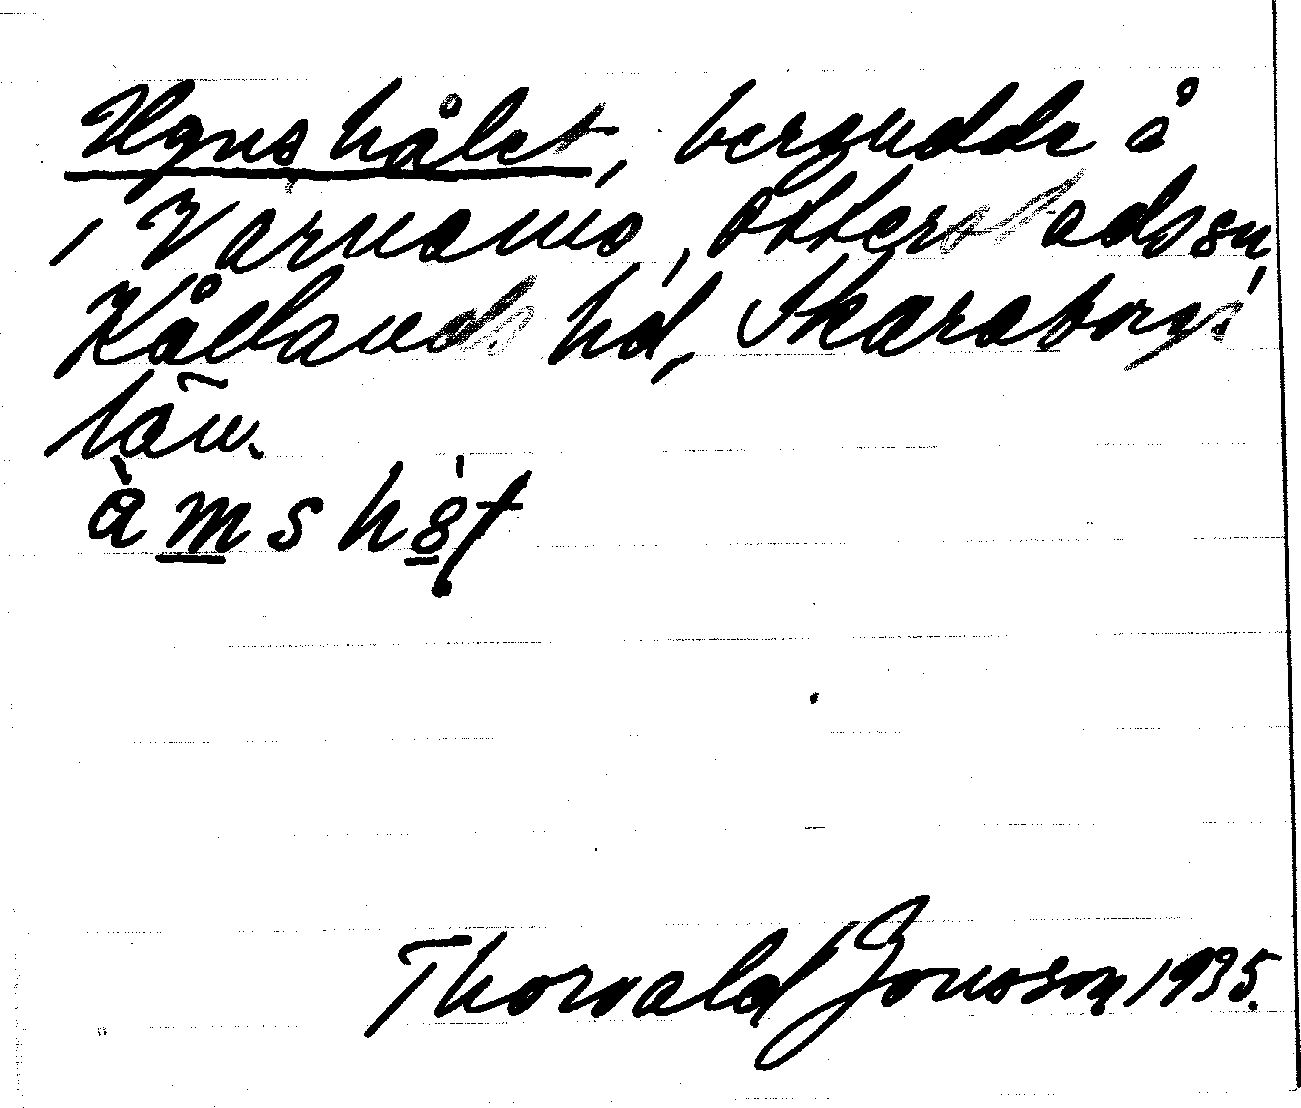 Ugnshålet, bergudde å
i Värnäms, Otterstads sn,
Kållands hd, Skaraborgs
län.
Thorvald Jonsson 1935.